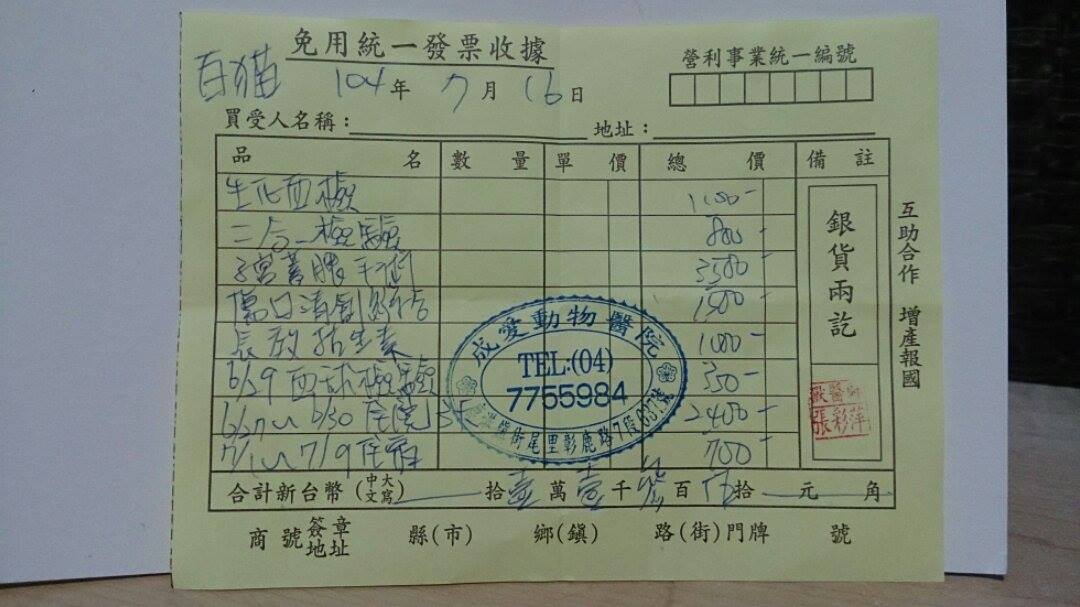 免用統一發票收據
白貓 104年 7月 16日
營利事業統一編號
買受人名稱: 地址:
品名 數量 單價 總價 備註
生化血檢 1100-
二合一檢驗 800-
子宮蓄膿手術 3500-
傷口清創 1500-
長效抗生素 1000-
6/29 血球檢驗 350-
6/27~6/30 住院 2400-
7/1~7/9 住宿 700
合計新台幣(中文大寫) 拾壹萬壹千參百伍拾 元 角
商號簽章地址 縣(市) 鄉(鎮) 路(街)門牌 號
銀貨兩訖
互助合作 增產報國
成愛動物醫院
TEL:(04)
7755984
街尾里彰鹿路7段637號
獸醫師
張彩萍